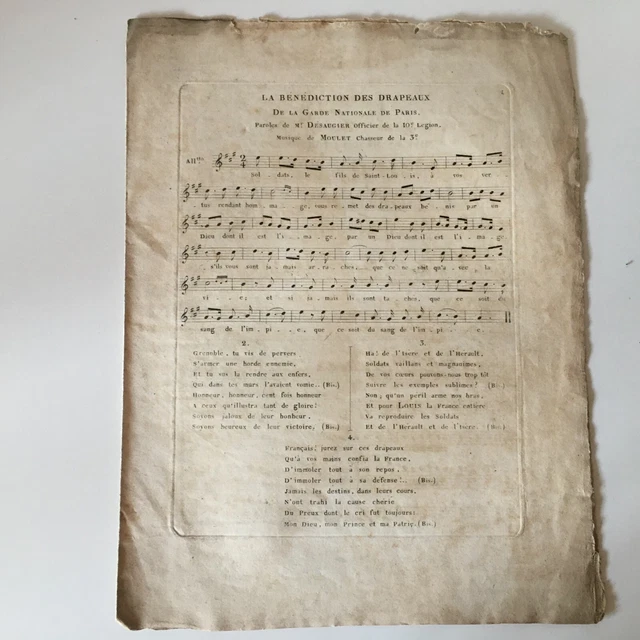 LA BENEDICTION DES DRAPEAUX
DE LA GARDE NATIONALE DE PARIS,
Paroles de Mr. DESAUGIER Officier de la 10e Legion.
Musique de MOULET Chasseur de la 3e
All.tto
Sol_dats, le fils de Saint_Lou_is, à vos ver
tus rendant hom_ma_ge, vous re_met des dra_peaux be_nis par un
Dieu dont il est l'i_ma_ge, par un Dieu dont il est l'i_ma_ge
s'ils vous sont ja_mais ar_ra_chés, que ce ne soit qu'a_vec la
vi_e; et si ja_mais ils sont ta_chés, que ce soit du
sang de l'im_pi_e, que ce soit du sang de l'im_pi_e.
2.
Grenoble, tu vis de pervers
S'armer une horde ennemie,
Et tu sus la rendre aux enfers,
Qui dans tes murs l'avaient vomie.. (Bis.)
Honneur, honneur, cent fois honneur
A ceux qu'illustra tant de gloire!
Soyons jaloux de leur bonheur,
Soyons heureux de leur victoire, (Bis.)
3.
Ha! de l'Isere et de l'Herault,
Soldats vaillans et magnanimes,
De vos cœurs pouvons-nous trop tôt
Suivre les exemples sublimes! (Bis.)
Non; qu'un peril arme nos bras,
Et pour LOUIS la France entiere
Va reproduire les Soldats
Et de l'Herault et de l'Isere. (Bis.)
4.
Français, jurez sur ces drapeaux
Qu'à vos mains confia la France,
D'immoler tout à son repos,
D'immoler tout à sa defense!.. (Bis.)
Jamais les destins, dans leurs cours,
N'ont trahi la cause cherie
Du Preux dont le cri fut toujours:
Mon Dieu, mon Prince et ma Patrie. (Bis.)